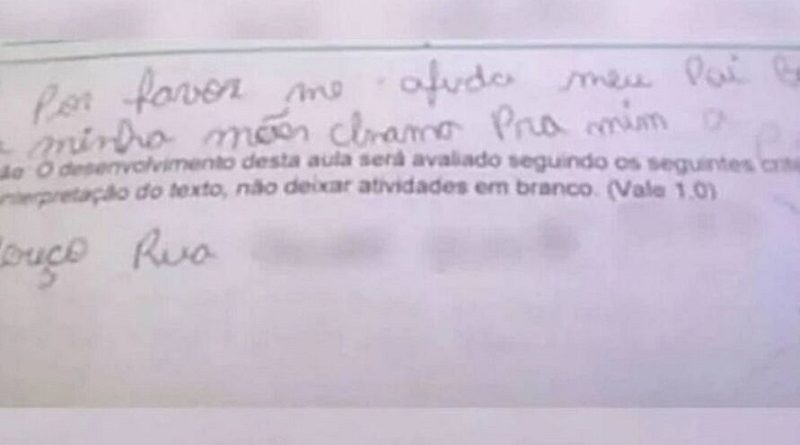 Por favor me ajuda meu Pai
a minha mães chamo Pra mim a
O desenvolvimento desta aula será avaliado seguindo os seguintes
nterpretação do texto, não deixar atividades em branco. (Vale 1.0)
Rua